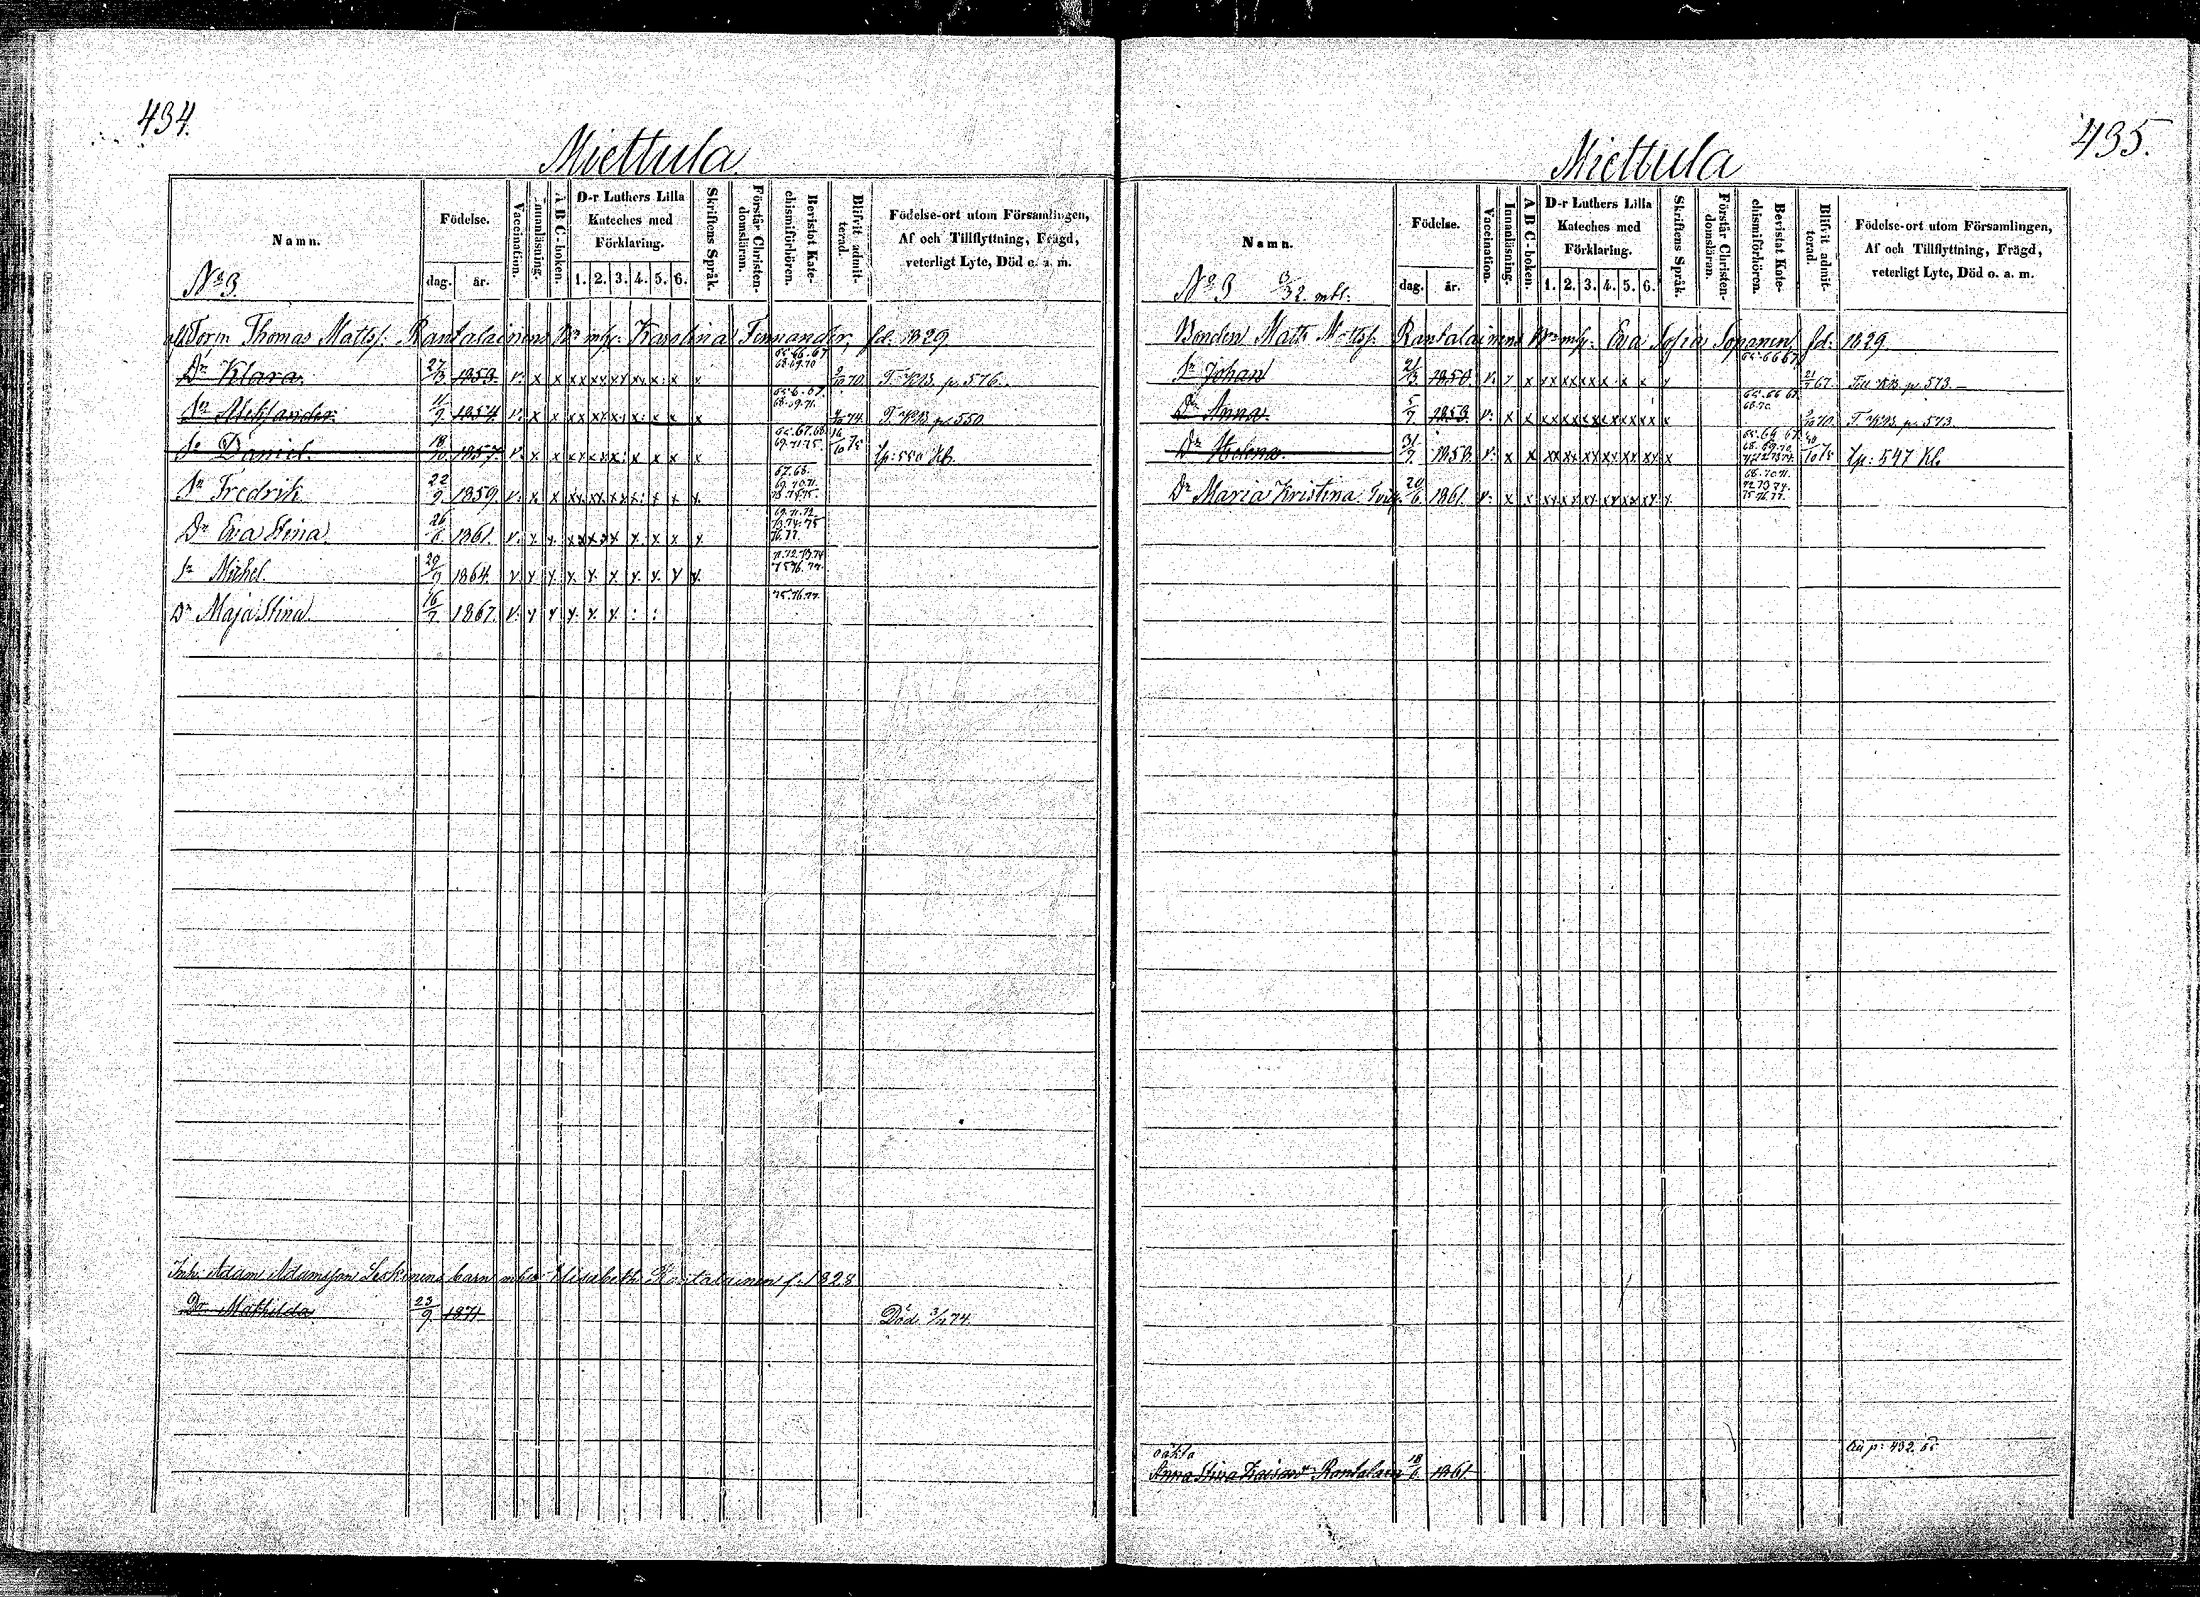 434.
Miettula.
Namn.
Födelse.
dag. år.
Vaccination.
Innanläsning.
A B C-boken.
D-r Luthers Lilla
Kateches med
Förklaring.
1. 2. 3. 4. 5. 6.
Skriftens Språk.
Förstår Christen-
domsläran.
Bevistat Kate-
chismiförhören.
Blifvit admit-
terad.
Födelse-ort utom Församlingen,
Af och Tillflyttning, Frägd,
veterligt Lyte, Död o. a. m.
No 3.
Torp. Thomas Mattss: Rantalainens Bn mh: Karolina Fennander, fd. 1829
Dr Klara 27/3 1853. v. x x xx xx xx xx x. x x 65.66.67 68.69.70 2/10 70. T. KB. p. 576.
Sn Alexander. 11/9 1854. v. x x xx xx x x x x x 68.69.71. 74. T. KB. p. 550
Sn Daniel. 18/10 1857. v. x x xx xx x x x x x 65.67.68. 69.71.75. 16/10 75 Cp: 550 Kb.
Sn Fredrik 22/9 1859 v. x x xx xx xx x x x x. 67.68. 69.70.71. 73.74.75.
Dr Eva Stina. 26/6 1861. v. x x. xx xx x x. x x x. 69.71.72. 73.74.75 76.77.
Sn Michel. 20/7 1864. v. x x. x. x. x x. x. x x. 71.72.73.74 75.76.77.
Dr Maja Stina. 16/7 1867. v. x x x. x. x. : : 75.76.77.
Inh. Adam Adamsson Leskinens barn mh: Elisabeth Rantalainen f. 1828
Dr Mathilda 23/9 1871 Död. 3/4 74.
435.
Miettula
Namn.
Födelse.
dag. år.
Vaccination.
Innanläsning.
A B C-boken.
D-r Luthers Lilla
Kateches med
Förklaring.
1. 2. 3. 4. 5. 6.
Skriftens Språk.
Förstår Christen-
domsläran.
Bevistat Kate-
chismiförhören.
Blifvit admit-
terad.
Födelse-ort utom Församlingen,
Af och Tillflyttning, Frägd,
veterligt Lyte, Död o. a. m.
No 3 3/32 mtl:
Bonden Matts Mattss: Rantalainens Bn mh: Eva Sofia Soponen fd: 1829.
Sn Johan 21/3 1850. v. x x xx xx xx x x x x 65.66 67 21/7 67. Till KB. p. 573.
Dr Anna. 5/7 1853. v. x x xx xx xx xx xx x x 65.66 67. 68.70. 2/10 70. T. KB. p. 573.
Dr Helena. 31/7 1858. v. x x xx xx xx xx xx xx x 65.66 67. 10 75 Cp: 547 Kb.
Dr Maria Kristina 20/6 1861. v. x x xx xx xx xx xx xx x. 68.70.71. 72.73.74. 75.76.77.
oäkta
Anna Stina 18/6 1861
p: 432.